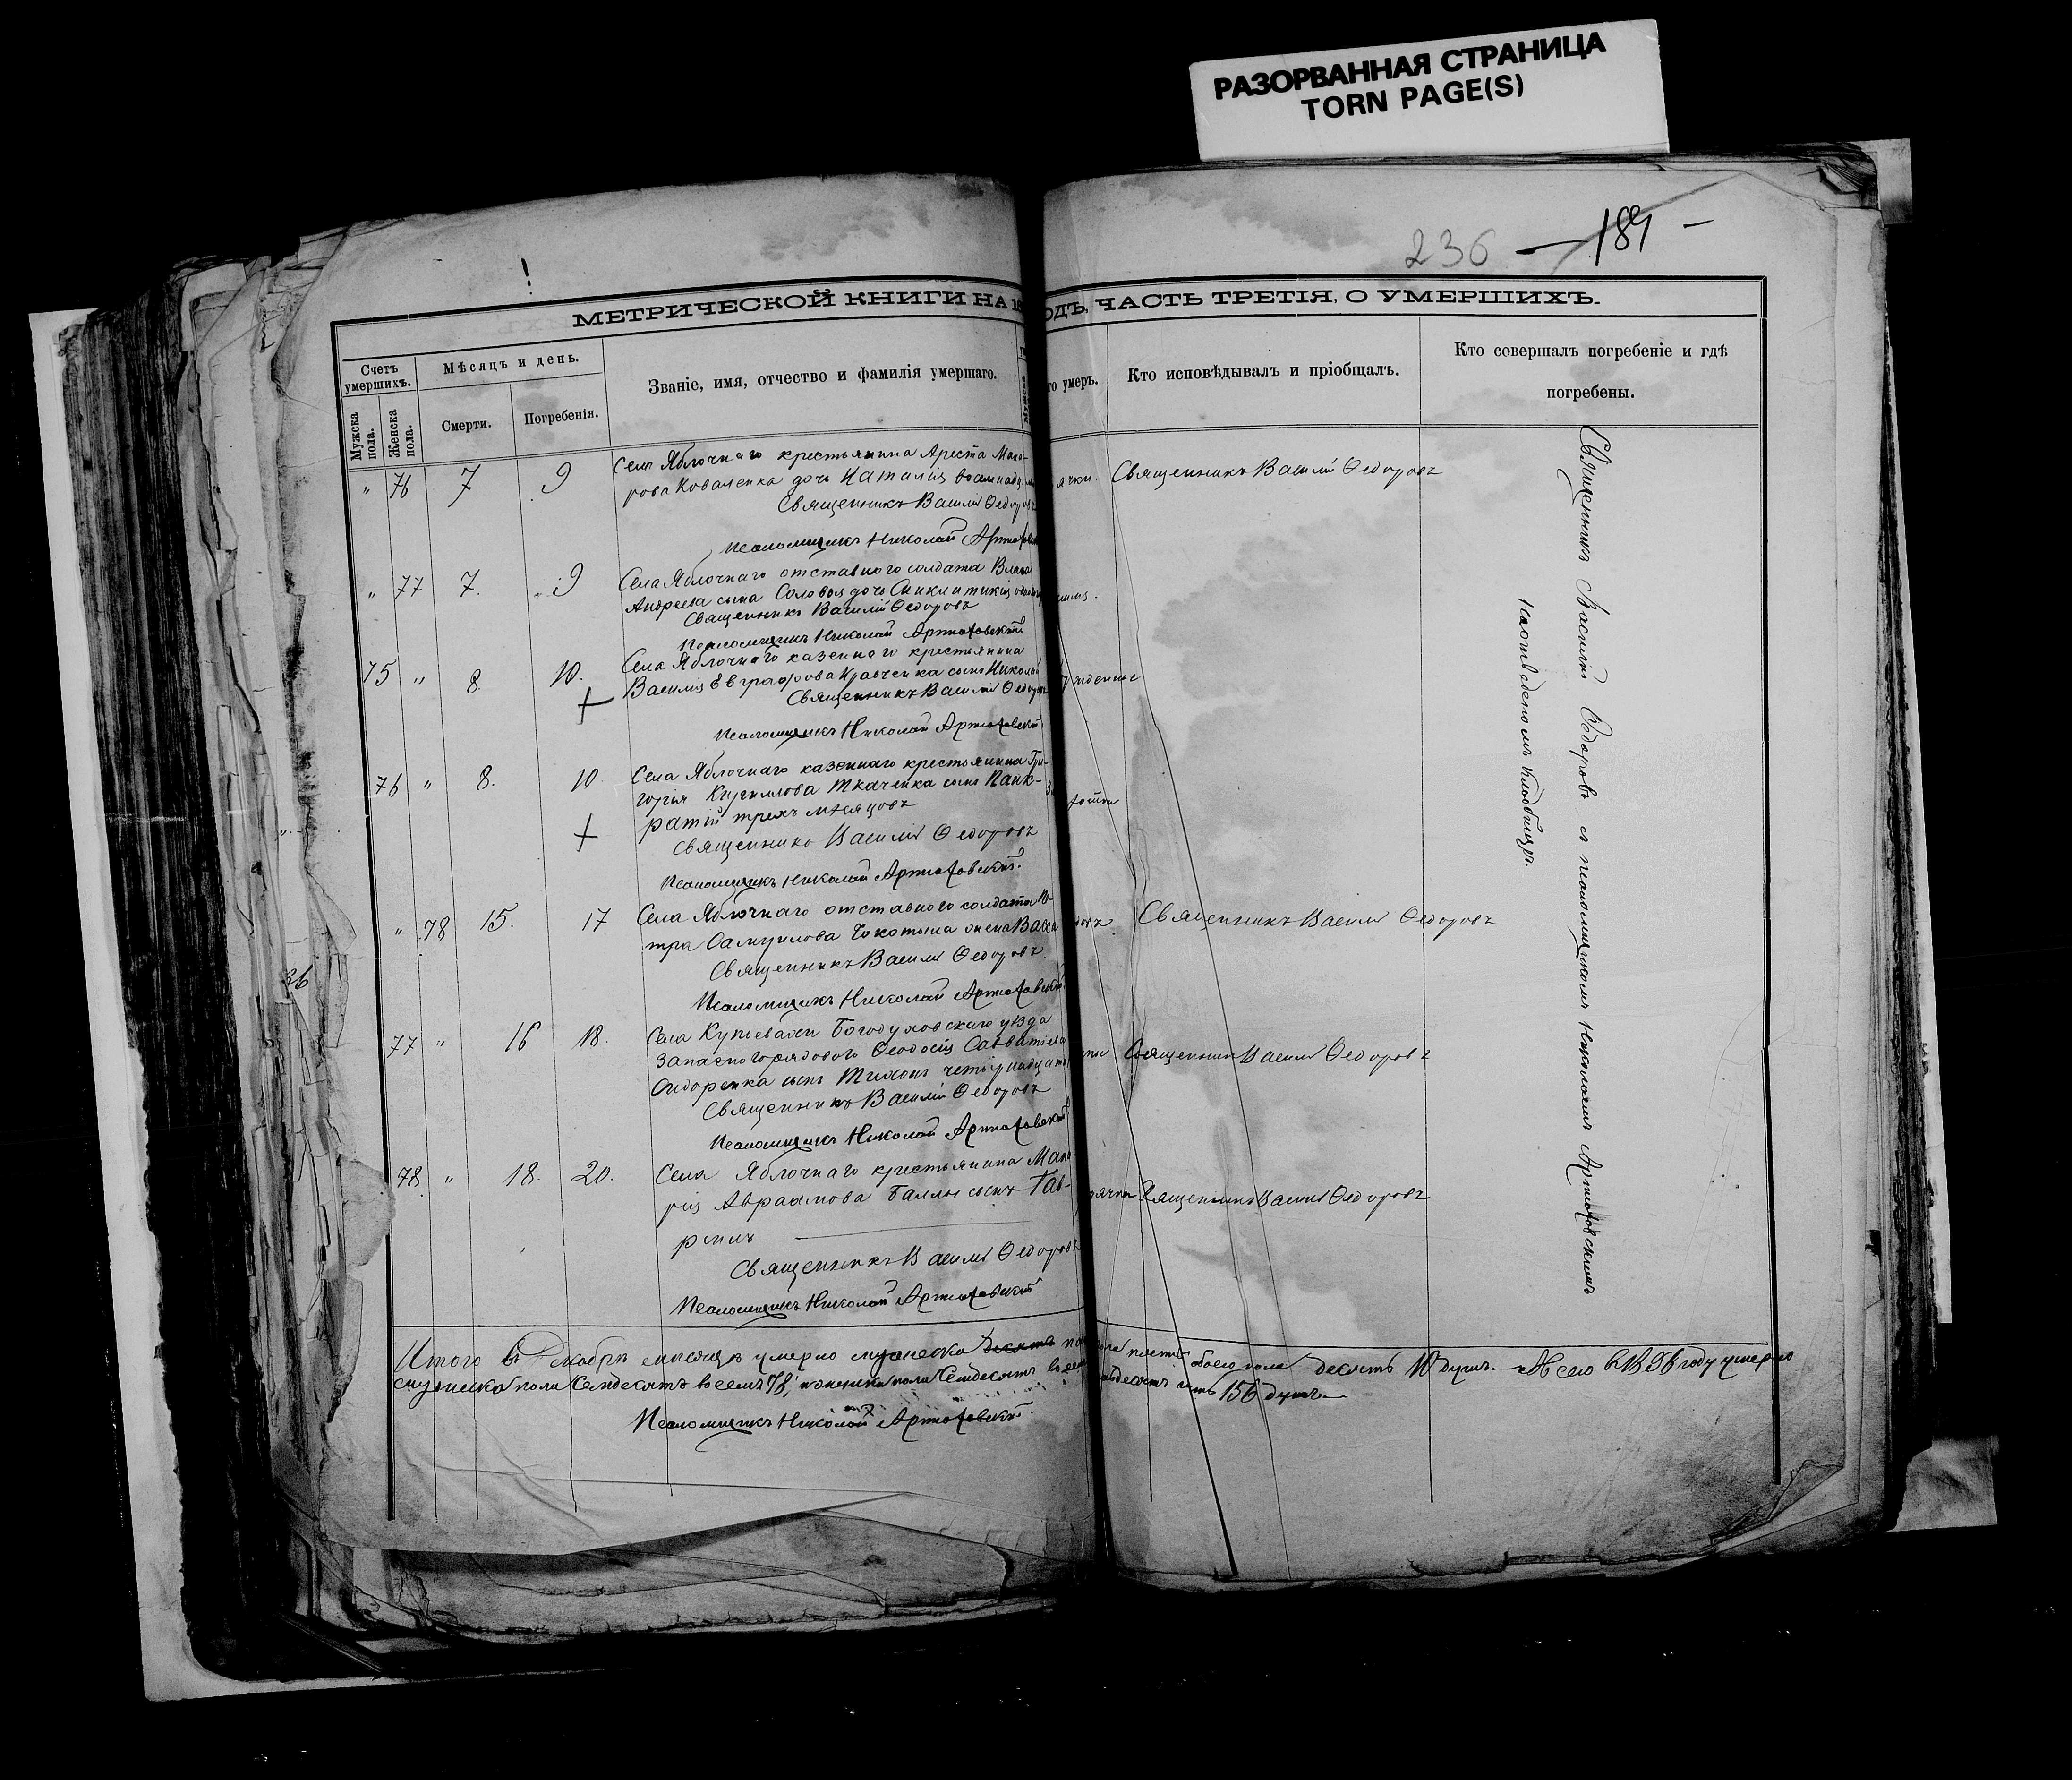 РАЗОРВАННАЯ СТРАНИЦА
TORN PAGE(S)
236 — 189 —
МЕТРИЧЕСКОЙ КНИГИ НА 18
ОДЪ, ЧАСТЬ ТРЕТІЯ, О УМЕРШИХЪ.
Счетъ умершихъ.
Мужска пола.
Женска пола.
Мѣсяцъ и день.
Смерти.
Погребенія.
Званіе, имя, отчество и фамилія умершаго.
го умеръ.
Кто исповѣдывалъ и пріобщалъ.
Кто совершалъ погребеніе и гдѣ
погребены.
" 76 7 9 Села Яблочнаго крестьянина Ареста Мака-
рова Коваленка дочь Наталія
Священникъ Василій Ѳедоровъ
Псаломщикъ Николай Артюховскій
ячки. Священникъ Василій Ѳедоровъ
" 77 7. 9 Села Яблочнаго отставного солдата Власа
Андреева сына Соловья дочь
Священникъ Василій Ѳедоровъ
Псаломщикъ Николай Артюховскій
75 " 8 10. Села Яблочнаго казеннаго крестьянина
Василія Евграфова Кравченка сынъ Николай
Священникъ Василій Ѳедоровъ
Псаломщикъ Николай Артюховскій
76 " 8. 10 Села Яблочнаго казеннаго крестьянина Гри-
горія Кириллова Ткаченка сынъ Панк-
ратій трехъ мѣсяцовъ
Священникъ Василій Ѳедоровъ
Псаломщикъ Николай Артюховскій.
" 78 15. 17 Села Яблочнаго отставного солдата
тра Самуилова жена
Священникъ Василій Ѳедоровъ
Псаломщикъ Николай Артюховскій
Священникъ Василій Ѳедоровъ
77 " 16 18. Села Купьевахи Богодуховскаго уѣзда
Запасного рядового Ѳеодосія Савватіева
Сидоренка сынъ Тихонъ
Священникъ Василій Ѳедоровъ
Псаломщикъ Николай Артюховскій
Священникъ Василій Ѳедоровъ
78. " 18. 20. Села Яблочнаго крестьянина Мака-
рія Авраамова сынъ Гав-
риилъ
Священникъ Василій Ѳедоровъ
Псаломщикъ Николай Артюховскій
Священникъ Василій Ѳедоровъ
Священникъ Василій Ѳедоровъ съ псаломщикомъ Николаемъ Артюховскимъ
на отведеномъ кладбищѣ.
Итого въ Декабрѣ мѣсяцѣ умерло мужеска обоего пола десять 10 душъ. А всего въ 1898 году умерло
мужеска пола Семдесятъ восемъ 78, женска пола Семдесятъ 156 душъ.
Псаломщикъ Николай Артюховскій